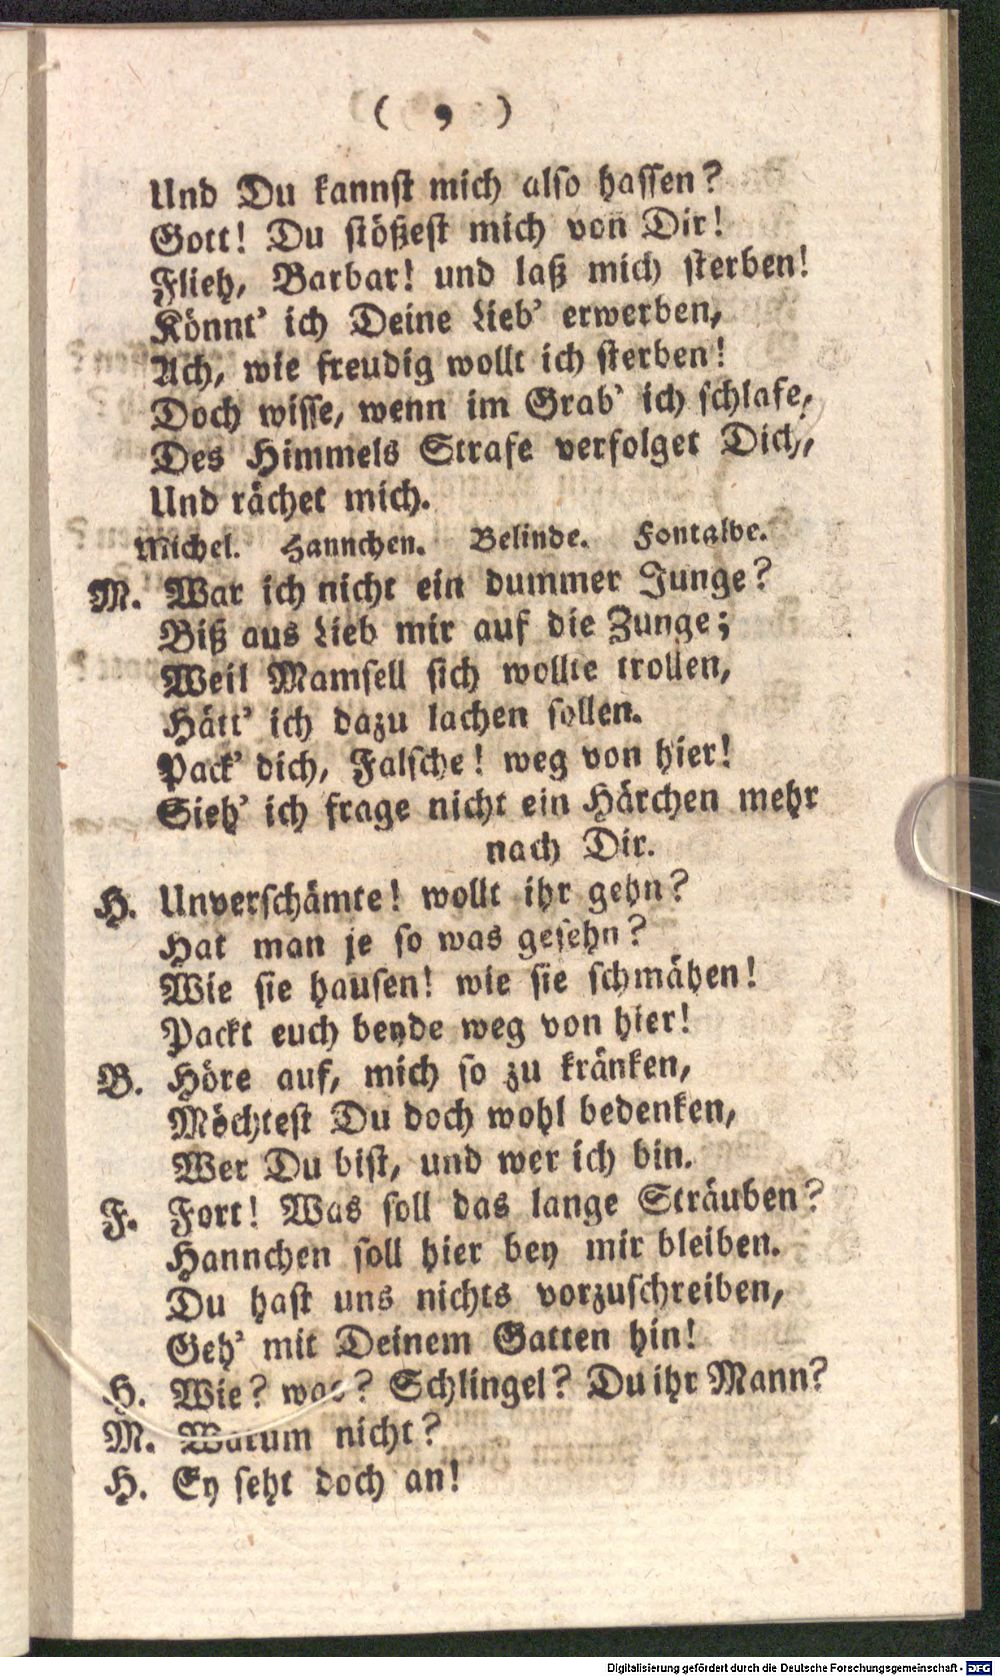 ( 9 )
Und Du kannst mich also hassen?
Gott! Du stößest mich von Dir!
Flieh, Barbar! und laß mich sterben!
Könnt' ich Deine Lieb' erwerben,
Ach, wie freudig wollt ich sterben!
Doch wisse, wenn im Grab' ich schlafe,
Des Himmels Strafe verfolget Dich,
Und rächet mich.
Michel. Hannchen. Belinde. Fontalbe.
M. War ich nicht ein dummer Junge?
Biß aus Lieb mir auf die Zunge;
Weil Mamsell sich wollte trollen,
Hätt' ich dazu lachen sollen.
Pack' dich, Falsche! weg von hier!
Sieh' ich frage nicht ein Härchen mehr
nach Dir.
H. Unverschämte! wollt ihr gehn?
Hat man je so was gesehn?
Wie sie hausen! wie sie schmähen!
Packt euch beyde weg von hier!
B. Höre auf, mich so zu kränken,
Möchtest Du doch wohl bedenken,
Wer Du bist, und wer ich bin.
F. Fort! Was soll das lange Sträuben?
Hannchen soll hier bey mir bleiben.
Du hast uns nichts vorzuschreiben,
Geh' mit Deinem Gatten hin!
H. Wie? was? Schlingel? Du ihr Mann?
M. Warum nicht?
H. Ey seht doch an!
Digitalisierung gefördert durch die Deutsche Forschungsgemeinschaft - DFG